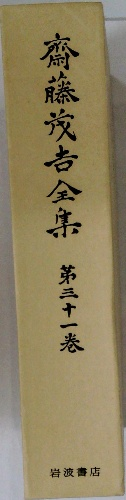 齋藤茂吉全集
第三十一卷
岩波書店